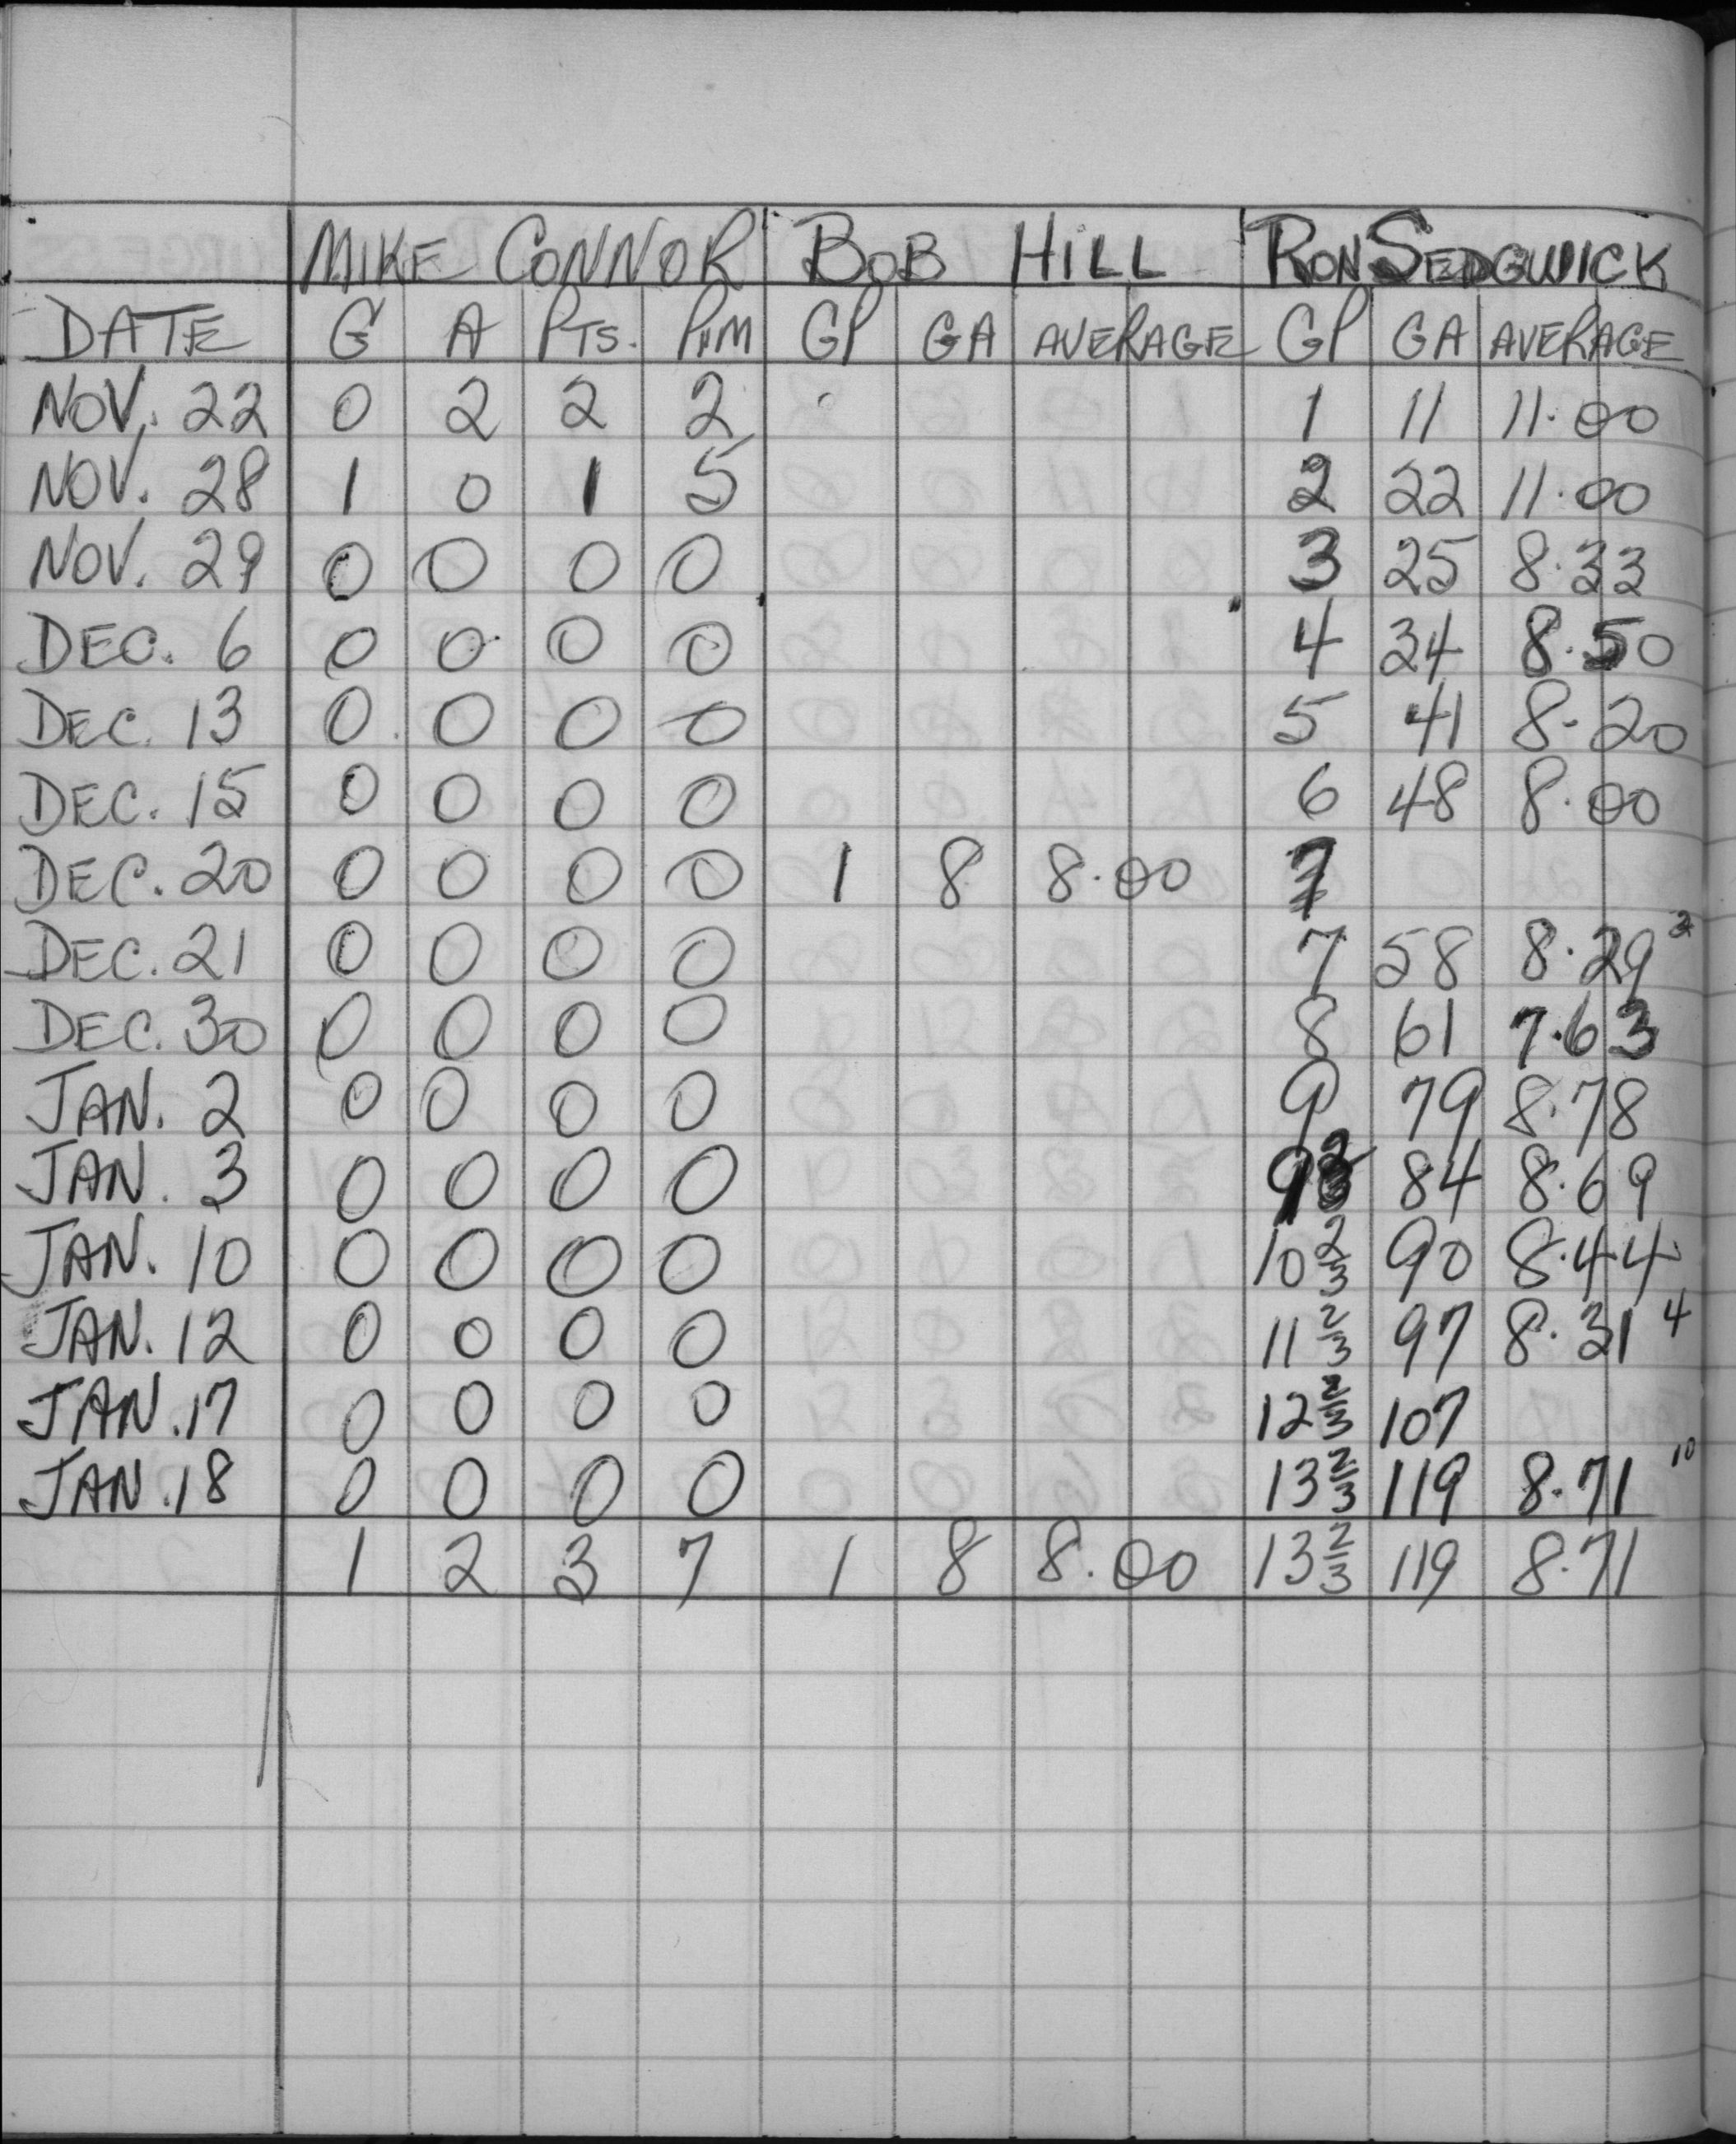 MIKE CONNOR BOB HILL RON SEDGWICK
DATE G A PTS. PIM GP GA AVERAGE GP GA AVERAGE
NOV. 22 0 2 2 2 1 11 11.00
NOV. 28 1 0 1 5 2 22 11.00
NOV. 29 0 0 0 0 3 25 8.33
DEC. 6 0 0 0 0 4 34 8.50
DEC. 13 0 0 0 0 5 41 8.20
DEC. 15 0 0 0 0 6 48 8.00
DEC. 20 0 0 0 0 1 8 8.00 7
DEC. 21 0 0 0 0 7 58 8.29
DEC. 30 0 0 0 0 8 61 7.63
JAN. 2 0 0 0 0 9 79 8.78
JAN. 3 0 0 0 0 9 2/3 84 8.69
JAN. 10 0 0 0 0 10 2/3 90 8.44
JAN. 12 0 0 0 0 11 2/3 97 8.31 4
JAN. 17 0 0 0 0 12 2/3 107
JAN. 18 0 0 0 0 13 2/3 119 8.71 10
1 2 3 7 1 8 8.00 13 2/3 119 8.71